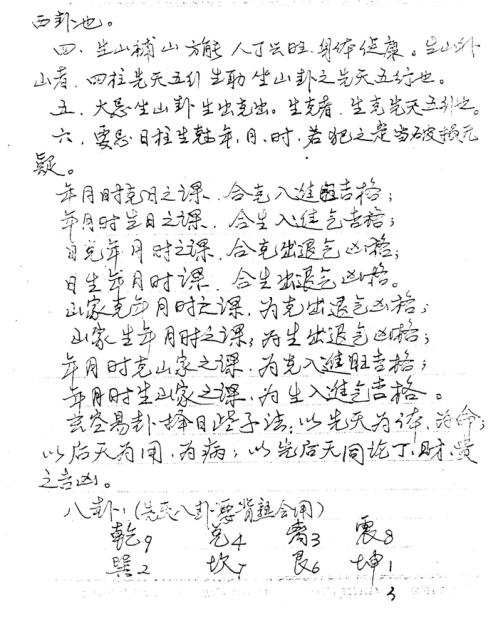 西卦也。
四、坐山補山方能人丁兴旺.身体健康。坐山补
山者.四柱先天五行生助坐山卦之先天五行也。
五、大忌坐山卦生出克出。生克者.生克先天五行也。
六、要忌日柱生克年.月.时.若犯之是当破损无
疑。
年月时克日之课.合克入進旺吉格；
年月时生日之课.合生入進气吉格；
日克年月时之课.合克出退气凶格；
日生年月时课.合生出退气凶格。
山家克年月时之课.为克出退气凶格；
山家生年月时之课；为生出退气凶格；
年月时克山家之课.为克入進旺吉格；
年月时生山家之课.为生入進气吉格。
玄空易卦择日坐子法：以先天为体.为命；
以后天为用.为病；以先后天同论丁.财.贵
之吉凶。
八卦：(先天八卦要背熟会用)
乾9 兑4 离3 震8
巽2 坎7 艮6 坤1
3